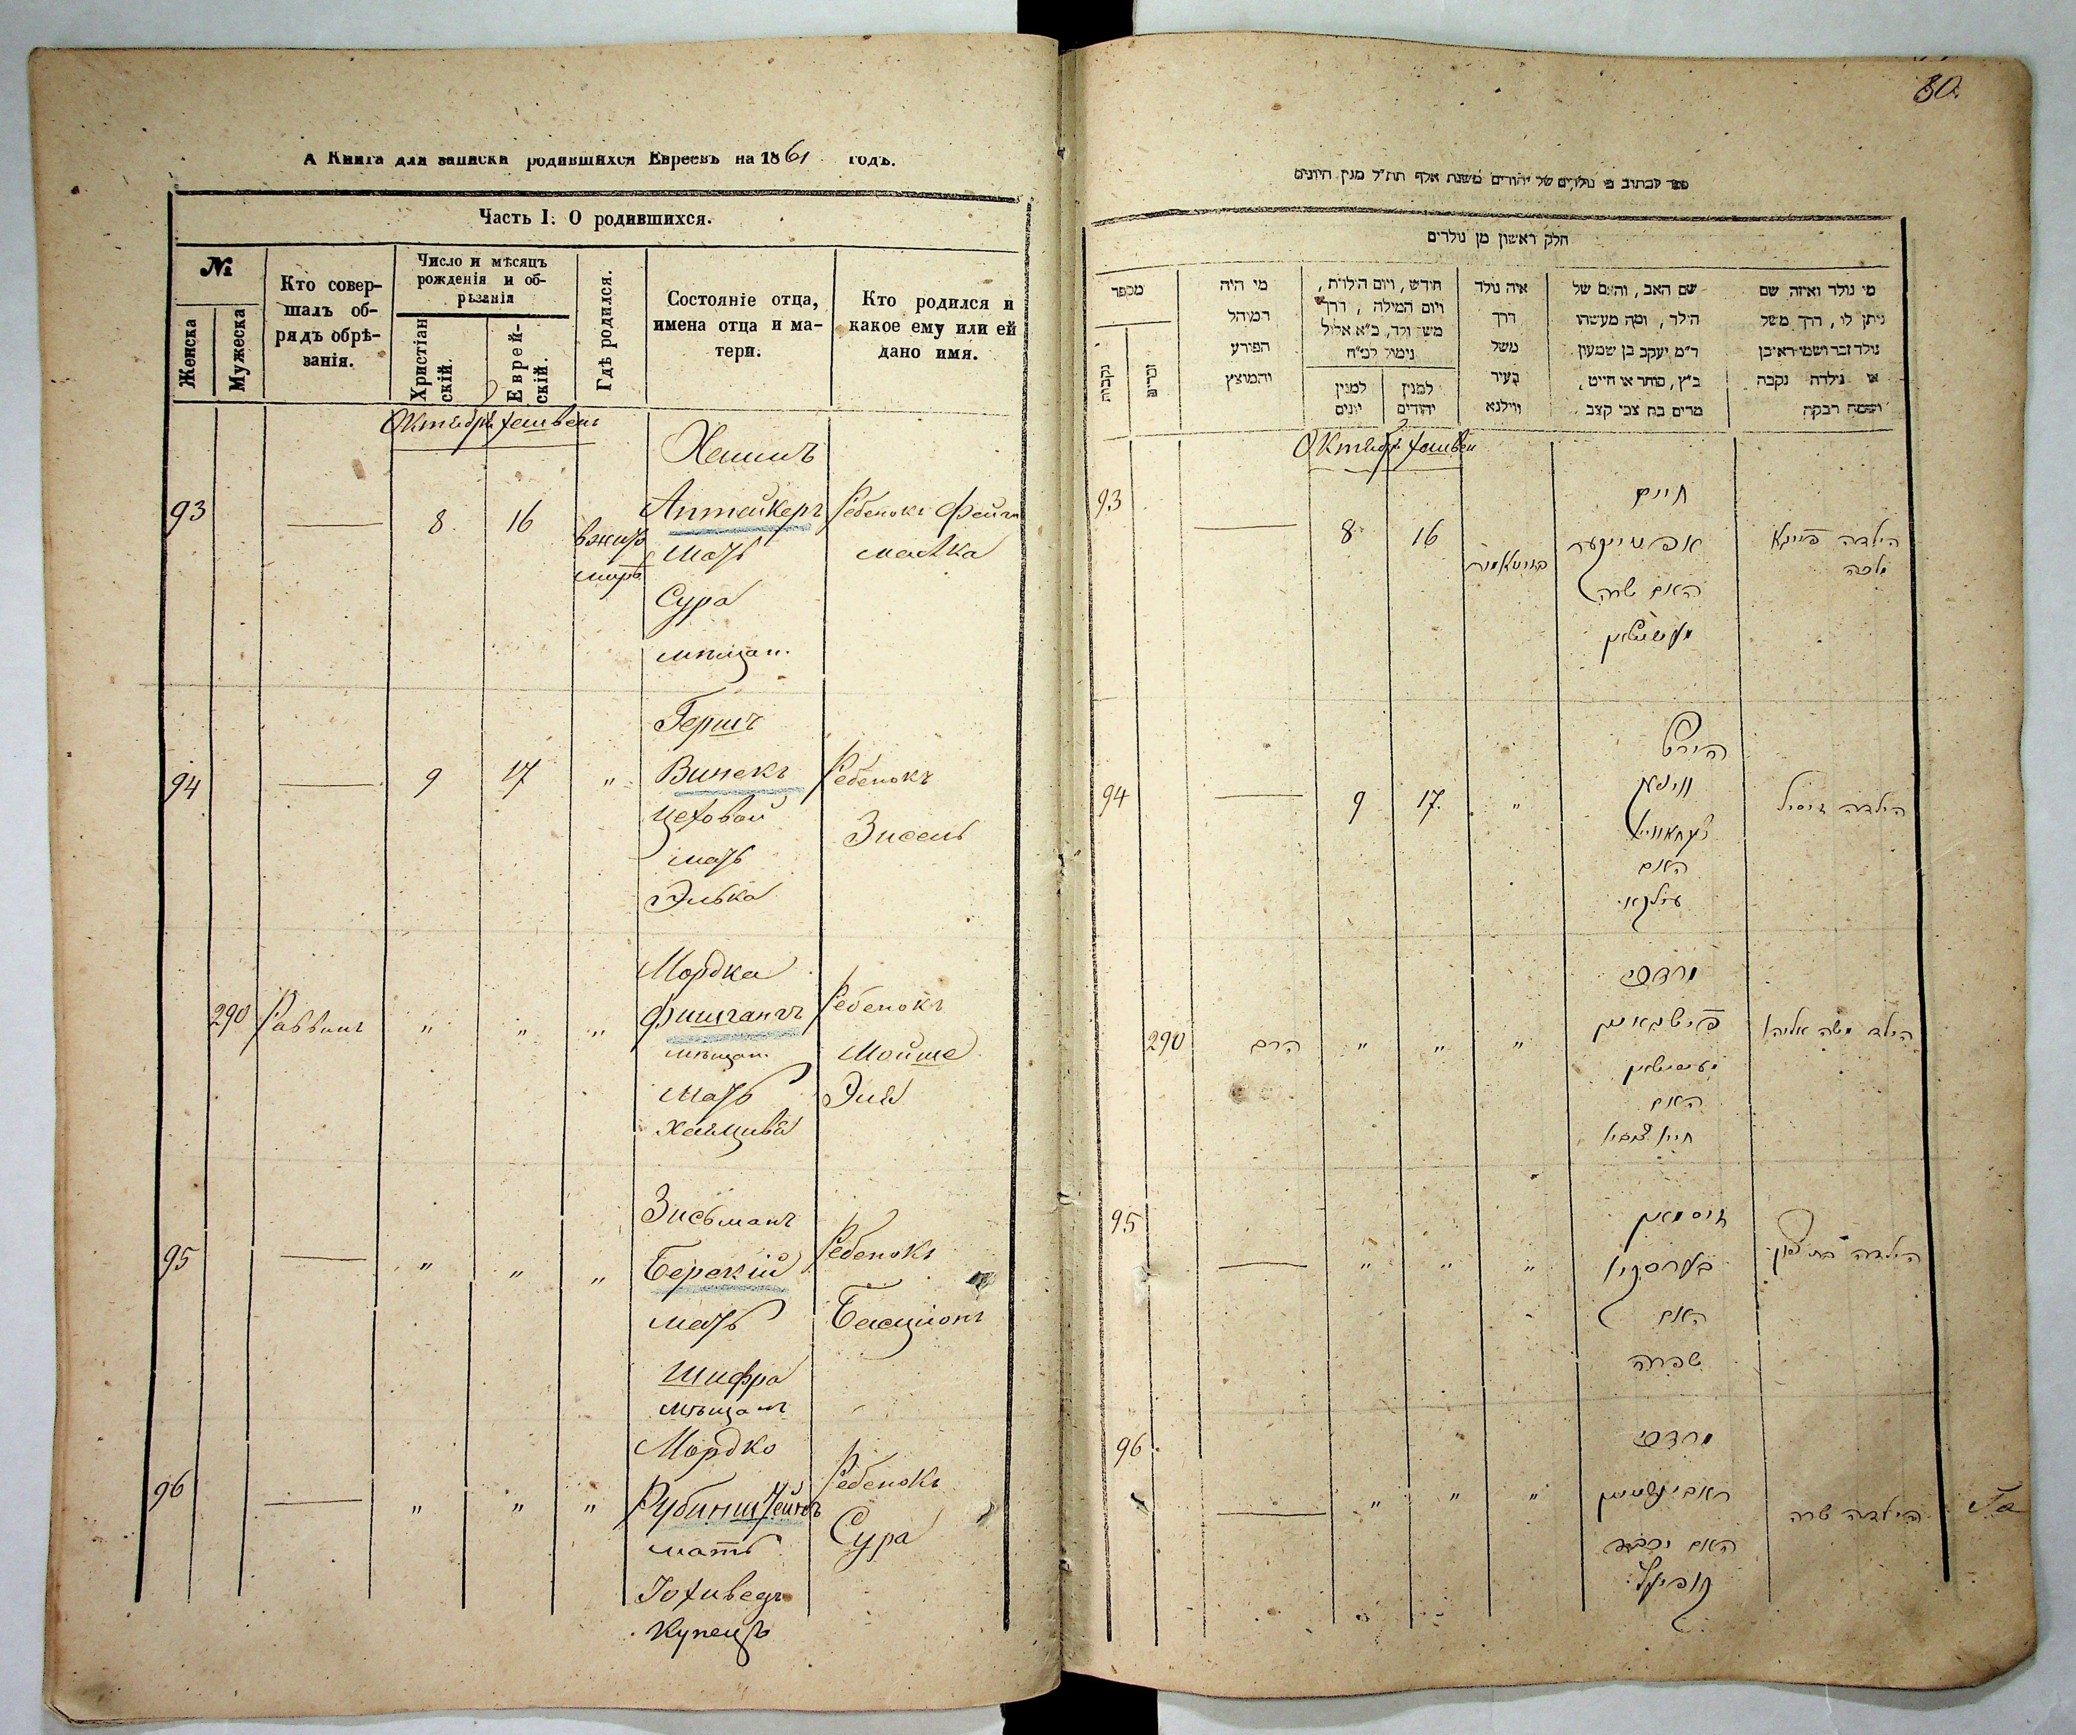 А Книга для записки родившихся Евреевъ на 1861 годъ.
Часть I. О родившихся.
№
Женска
Мужеска
Кто совер-
шалъ об-
рядъ обрѣ-
занія.
Число и мѣсяцъ
рожденія и об-
рѣзанія
Христіан
скій.
Еврей-
скій.
Гдѣ родился.
Состояніе отца,
имена отца и ма-
тери.
Кто родился и
какое ему или ей
дано имя.
Октябрь хешвень
Хаимъ
93 8 16 Аптейкеръ Ребенокъ Фейга
вжито
миръ мать малка
Сура
мѣщан.
Гершъ
94 9 17 " Винекъ Ребенокъ
цеховой
Зисель
мать
Элька
Мордка
290 Раввинъ " " " Фишганъ Ребенокъ
мѣщан. Мойше
мать Эля
Хаяцива
Зисьманъ
95 " " " Берскій Ребенокъ
мать Басціонъ
Шифра
мѣщанъ
Мордко
96 " " " Рубинштейнъ Ребенокъ
мать Сура
Іохиведъ
Купецъ
80.
ספר לכתוב בו נולדים של יהודים משנת אלף תת״ל מנין היונים
חלק ראשון מן נולדים
מספר
נקבות
זכרים
מי היה
המוהל
הפורע
והמוצץ
חודש, ויום הולדת,
ויום המילה, דרך
משל ולד, כ״א אלול
נימול לכ״ח
למנין
יונים
למנין
יהודים
איה נולד
דרך
משל
בעיר
ווילנא
שם האב, והאם של
הילד, ומה מעשהו
ר״מ יעקב בן שמעון
כ״ץ, סוחר או חייט,
מרים בת צבי קצב
מי נולד ואיזה שם
ניתן לו, דרך משל
נולד זכר ושמו ראובן
או נולדה נקבה
ושמה רבקה
Октябрь хешвен
חיים
93 8 16 אפטייקער הילדה פייגא
מלכה
האם שרה
מעשטשאן
הירש
94 9 17 " ווינעק הילדה זיסיל
צעחאוואי
האם
עלקא
מרדכי
290 הרב " " " פישגאנג הילד משה אליהו
האם
95 זיסמאן
" " " בערסקיא הילדה בת ציון
האם
שפרה
96 מרדכי
" " " ראבינשטיין הילדה שרה
האם יוכבד
קופיעץ